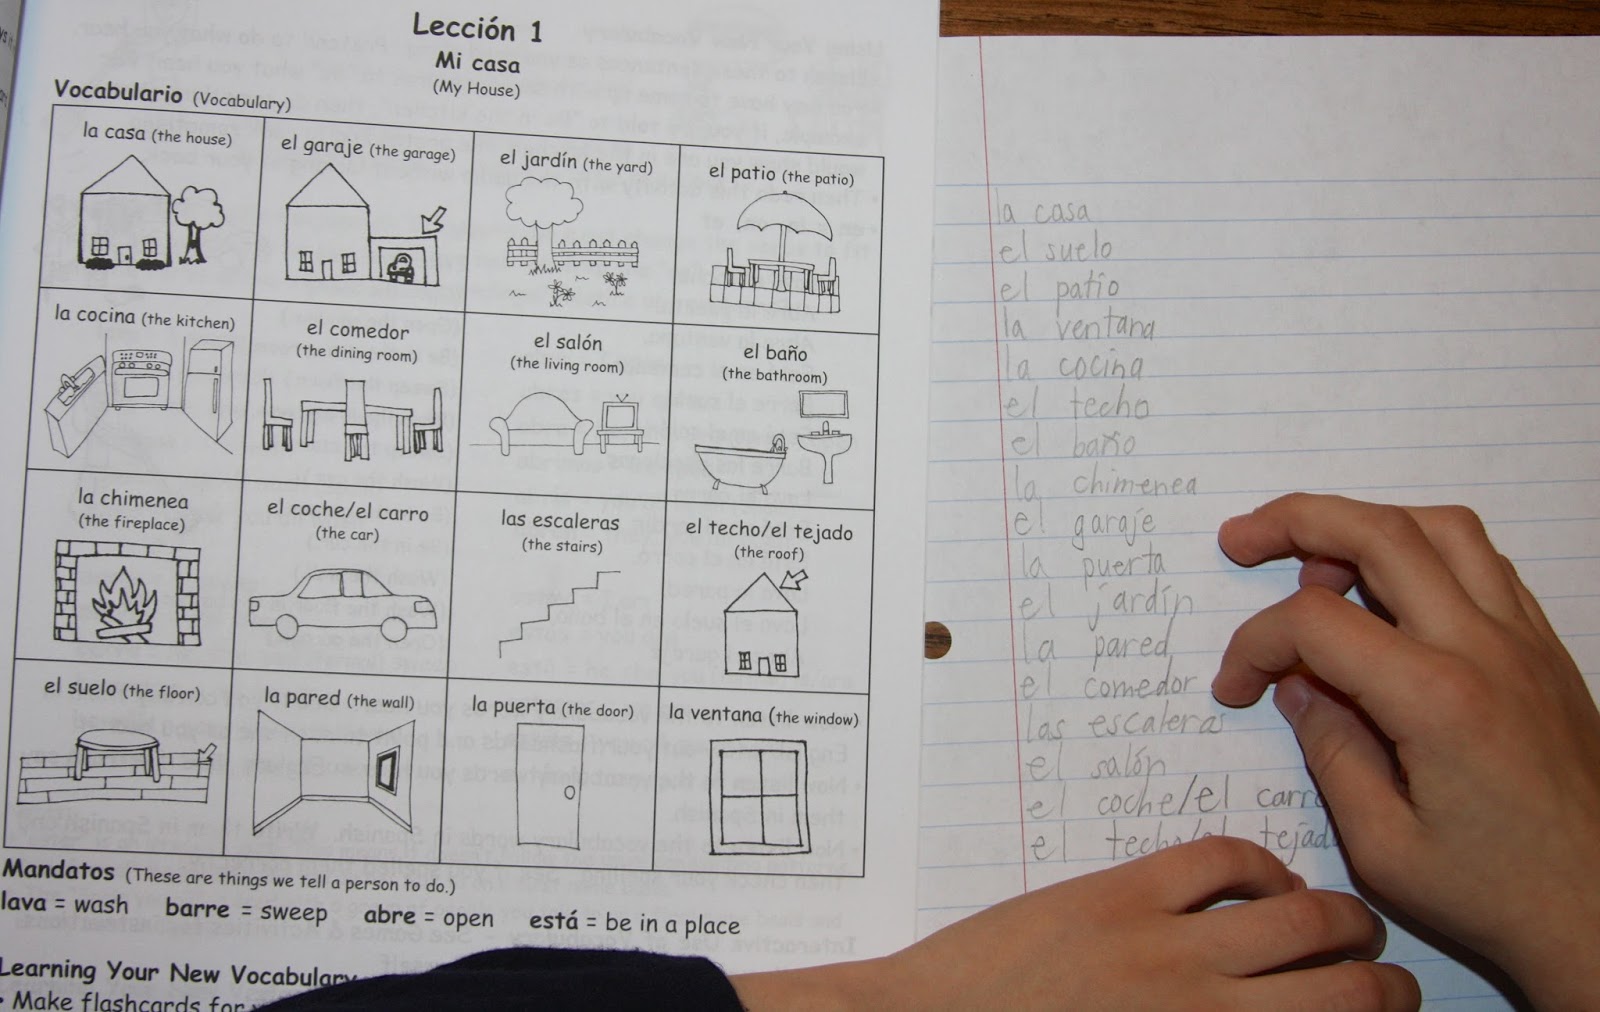 Lección 1
Mi casa
(My House)
Vocabulario (Vocabulary)
la casa (the house)
el garaje (the garage)
el jardín (the yard)
el patio (the patio)
la cocina (the kitchen)
el comedor
(the dining room)
el salón
(the living room)
el baño
(the bathroom)
la chimenea
(the fireplace)
el coche/el carro
(the car)
las escaleras
(the stairs)
el techo/el tejado
(the roof)
el suelo (the floor)
la pared (the wall)
la puerta (the door)
la ventana (the window)
Mandatos (These are things we tell a person to do.)
lava = wash barre = sweep abre = open está = be in a place
Learning Your New Vocabulary
• Make flashcards for
la casa
el suelo
el patio
la ventana
la cocina
el techo
el baño
la chimenea
el garaje
la puerta
el jardín
la pared
el comedor
las escaleras
el salón
el coche/el carro
el techo/el tejado